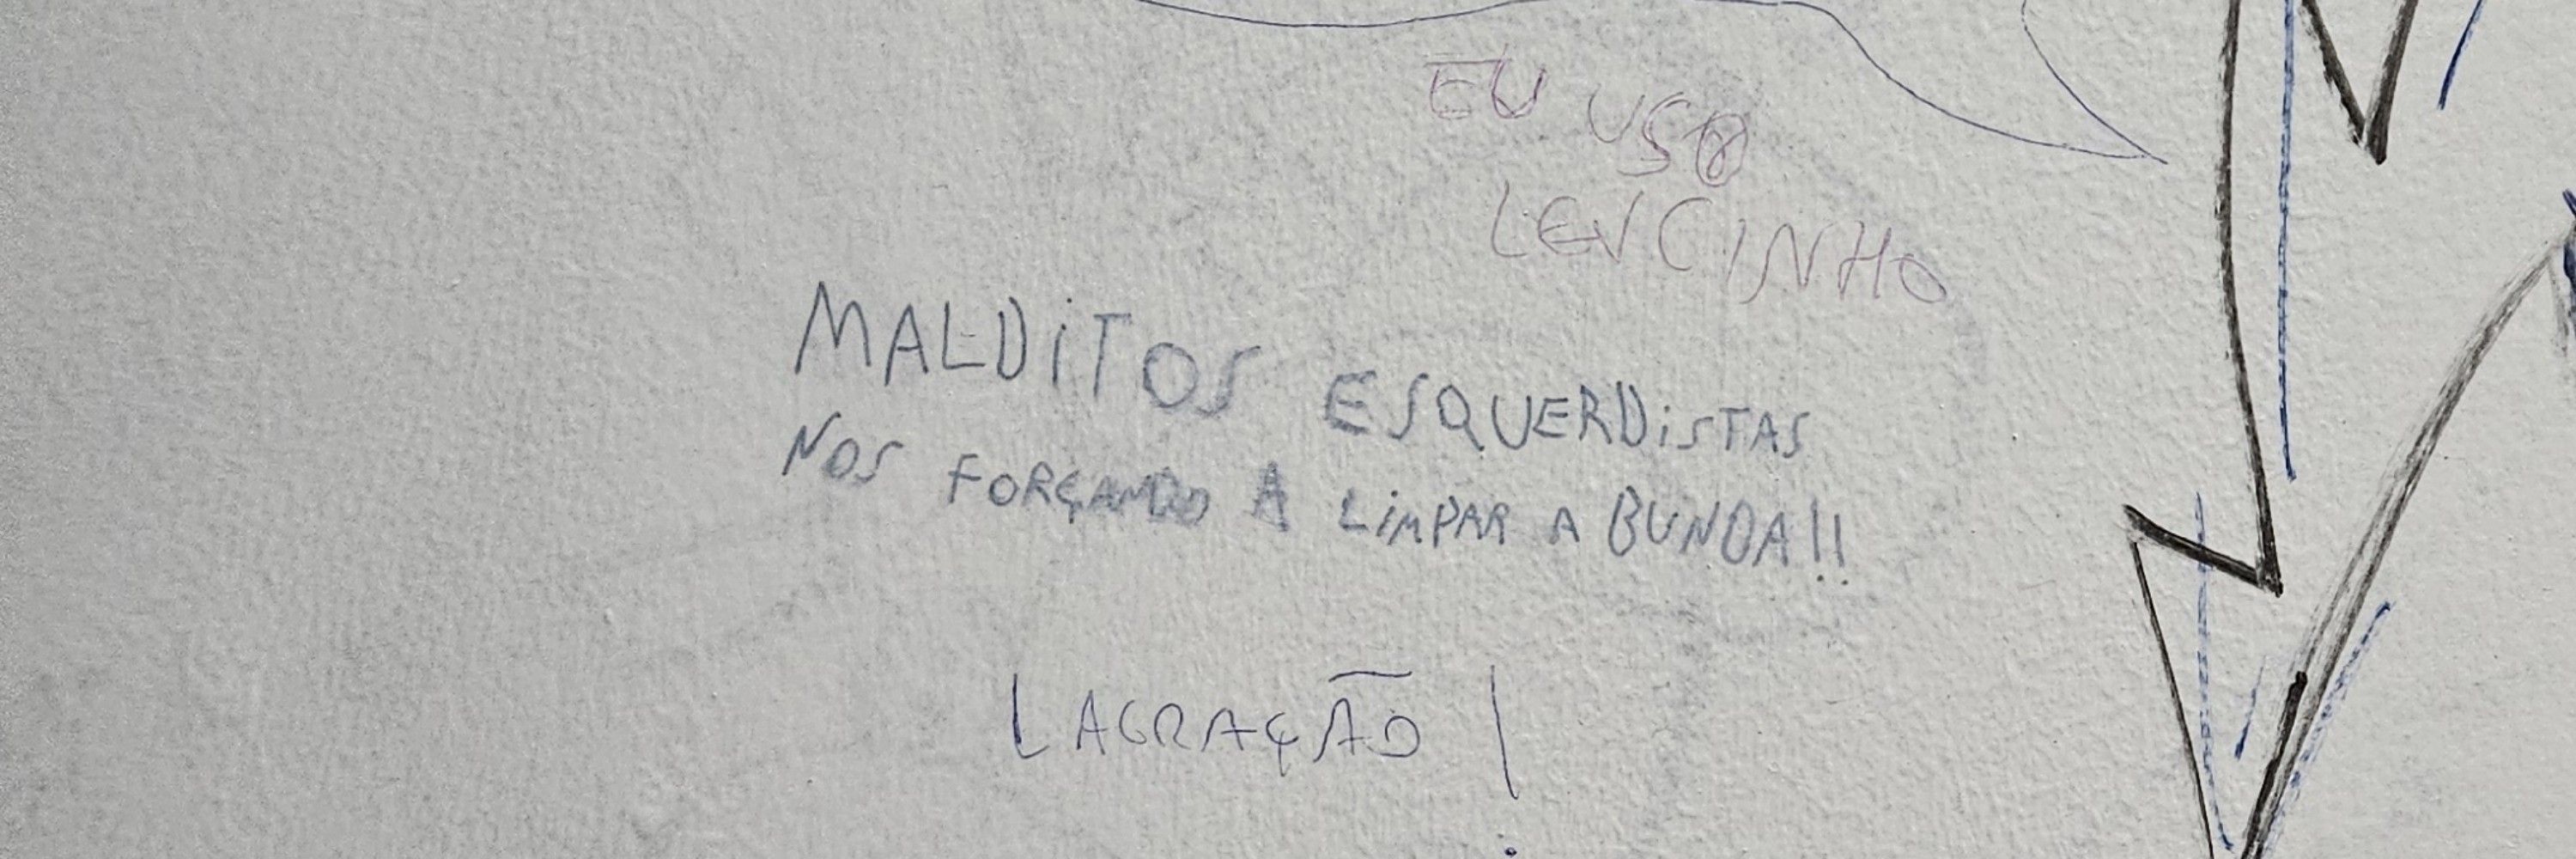 EU USO
LENCINHO
MALDiTOS ESQUERDiSTAS
NOS FORÇANDO A LiMPAR A BUNDA!!
LACRAÇÃO!